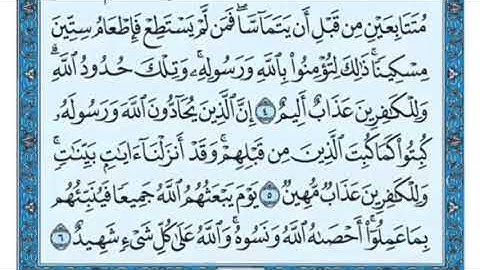 مُتَتَابِعَيْنِ مِن قَبْلِ أَن يَتَمَاسَّا ۖ فَمَن لَّمْ يَسْتَطِعْ فَإِطْعَامُ سِتِّينَ
مِسْكِينًا ۚ ذَٰلِكَ لِتُؤْمِنُوا۟ بِٱللَّهِ وَرَسُولِهِۦ ۚ وَتِلْكَ حُدُودُ ٱللَّهِ ۗ
وَلِلْكَـٰفِرِينَ عَذَابٌ أَلِيمٌ ٤ إِنَّ ٱلَّذِينَ يُحَآدُّونَ ٱللَّهَ وَرَسُولَهُۥ
كُبِتُوا۟ كَمَا كُبِتَ ٱلَّذِينَ مِن قَبْلِهِمْ ۚ وَقَدْ أَنزَلْنَآ ءَايَـٰتٍۭ بَيِّنَـٰتٍ ۚ
وَلِلْكَـٰفِرِينَ عَذَابٌ مُّهِينٌ ٥ يَوْمَ يَبْعَثُهُمُ ٱللَّهُ جَمِيعًا فَيُنَبِّئُهُم
بِمَا عَمِلُوٓا۟ ۚ أَحْصَىٰهُ ٱللَّهُ وَنَسُوهُ ۚ وَٱللَّهُ عَلَىٰ كُلِّ شَىْءٍ شَهِيدٌ ٦